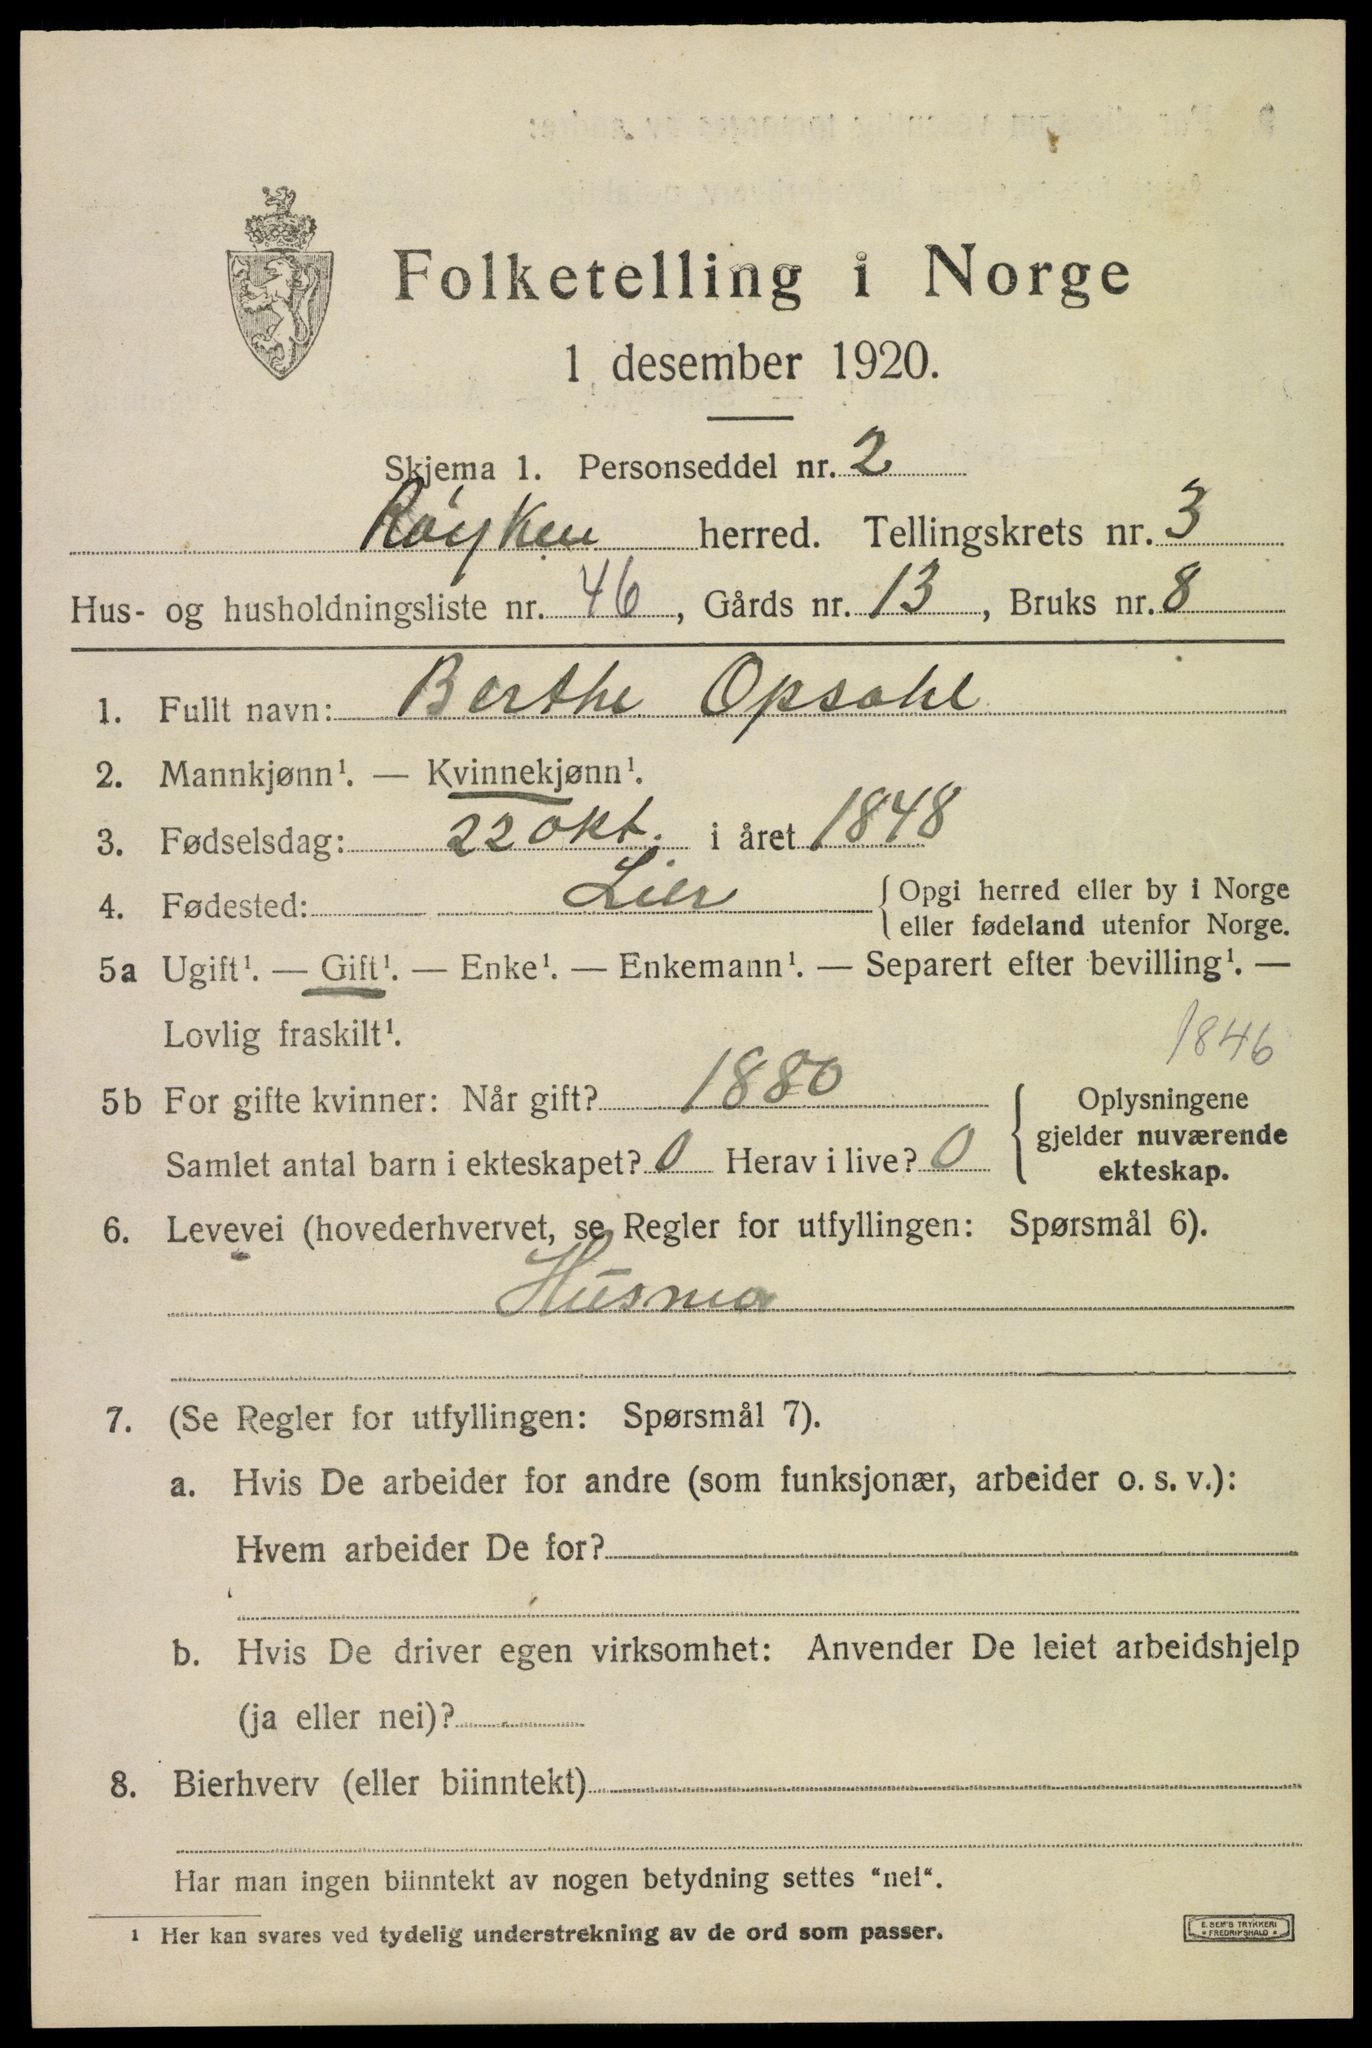 Folketelling i Norge
1 desember 1920.
Skjema 1. Personseddel nr. 2
Røyken herred. Tellingskrets nr. 3
Hus- og husholdningsliste nr. 46, Gårds nr. 13, Bruks nr. 8
1. Fullt navn: Berthe Opsahl
2. Mannkjønn¹. — Kvinnekjønn¹.
3. Fødselsdag: 22 okt. i året 1848
4. Fødested: Lier { Opgi herred eller by i Norge
eller fødeland utenfor Norge.
5a Ugift¹. — Gift¹. — Enke¹. — Enkemann¹. — Separert efter bevilling¹. —
Lovlig fraskilt¹.
1846
5b For gifte kvinner: Når gift? 1880
Samlet antal barn i ekteskapet? 0 Herav i live? 0
Oplysningene
gjelder nuværende
ekteskap.
6. Levevei (hovederhvervet, se Regler for utfyllingen: Spørsmål 6).
Husmo
7. (Se Regler for utfyllingen: Spørsmål 7).
a. Hvis De arbeider for andre (som funksjonær, arbeider o. s. v.):
Hvem arbeider De for?
b. Hvis De driver egen virksomhet: Anvender De leiet arbeidshjelp
(ja eller nei)?
8. Bierhverv (eller biinntekt)
Har man ingen biinntekt av nogen betydning settes "nei".
¹ Her kan svares ved tydelig understrekning av de ord som passer.
E. SEM'S TRYKKERI
FREDRIKSHALD